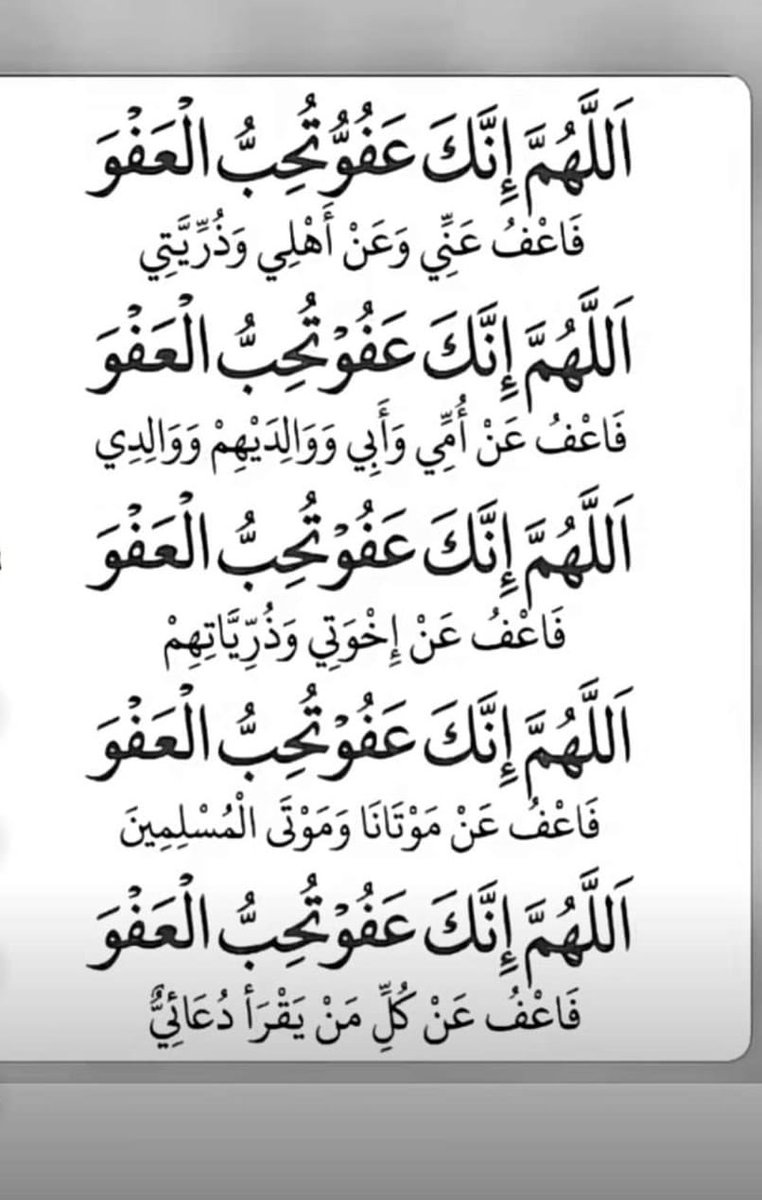 اَللَّهُمَّ إِنَّكَ عَفُوٌّ تُحِبُّ الْعَفْوَ
فَاعْفُ عَنِّي وَعَنْ أَهْلِي وَذُرِّيَّتِي
اَللَّهُمَّ إِنَّكَ عَفُوْ تُحِبُّ الْعَفْوَ
فَاعْفُ عَنْ أُمِّي وَأَبِي وَوَالِدَيْهِمْ وَوَالِدِي
اَللَّهُمَّ إِنَّكَ عَفُوْ تُحِبُّ الْعَفْوَ
فَاعْفُ عَنْ إِخْوَتِي وَذُرِّيَّاتِهِمْ
اَللَّهُمَّ إِنَّكَ عَفُوْ تُحِبُّ الْعَفْوَ
فَاعْفُ عَنْ مَوْتَانَا وَمَوْتَى الْمُسْلِمِينَ
اَللَّهُمَّ إِنَّكَ عَفُوْ تُحِبُّ الْعَفْوَ
فَاعْفُ عَنْ كُلِّ مَنْ يَقْرَأ دُعَائِيٌّ